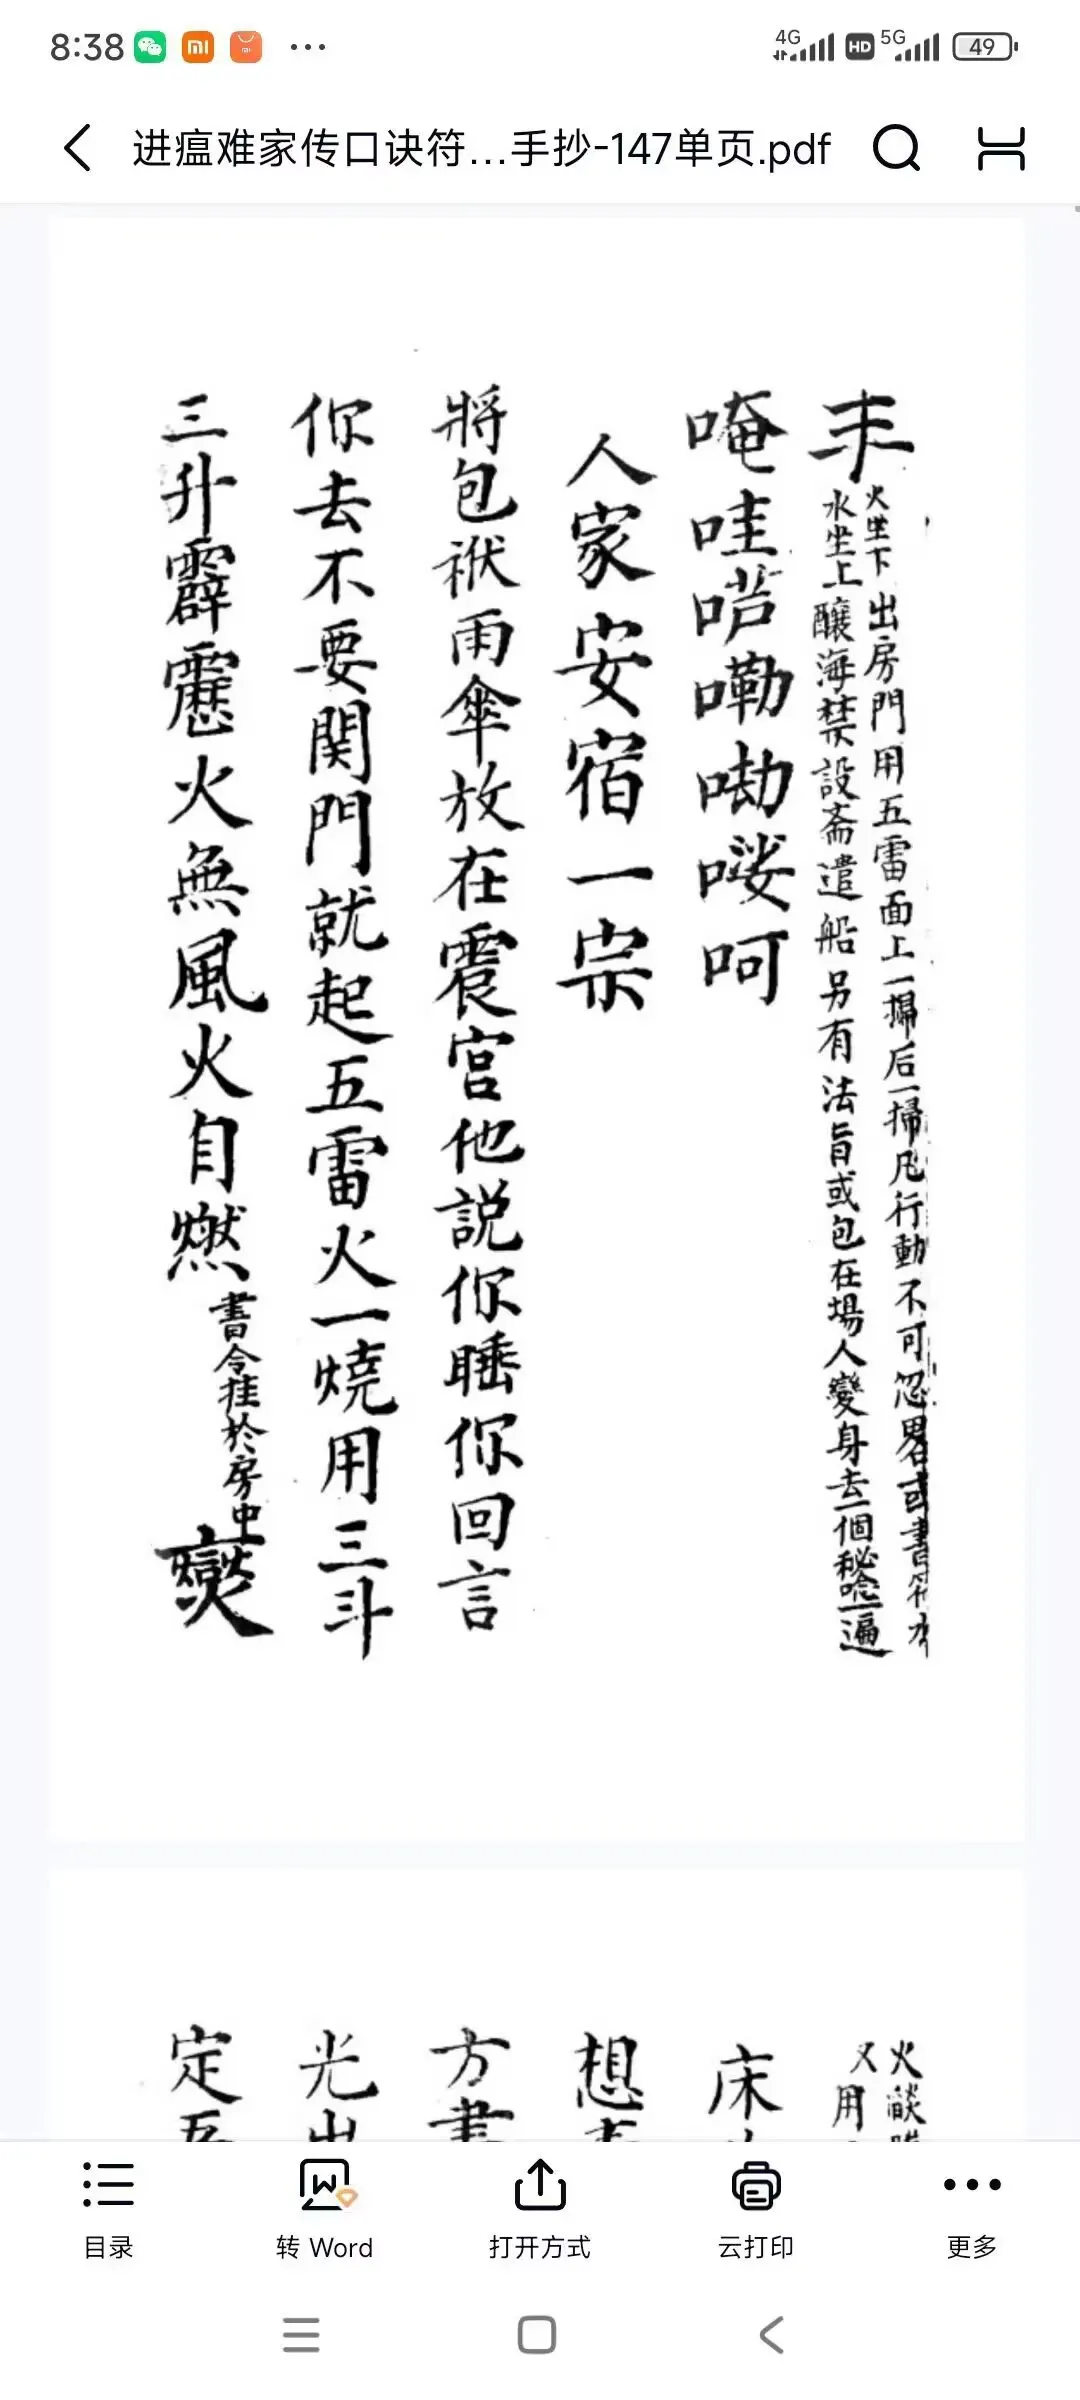 8:38 4G HD 5G 49
进瘟难家传口诀符...手抄-147单页.pdf
火坐下
水坐上
出房門用五雷面上一掃后一掃凡行動不可忽畧或書符水
醸海禁設斋遣船另有法旨或包在場人變身去一個秘唸一遍
唵哇喏嘞呦㗇呵
人家安宿一宗
將包袱雨傘放在震宫他説你睡你回言
你去不要関門就起五雷火一燒用三斗
三升霹靂火無風火自燃
書令挂於房中
火燄
又用
床
想
方書
光出
定五
目录
转 Word
打开方式
云打印
更多